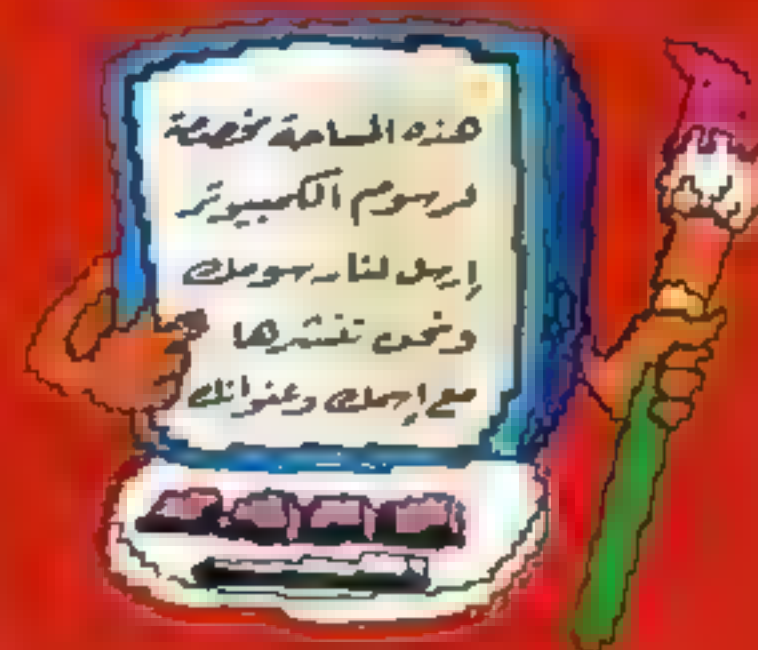 هذه المساحة مخصصة
لرسوم الكمبيوتر
إرسل لنا رسومك
ونحن ننشرها
مع إسمك وعنوانك